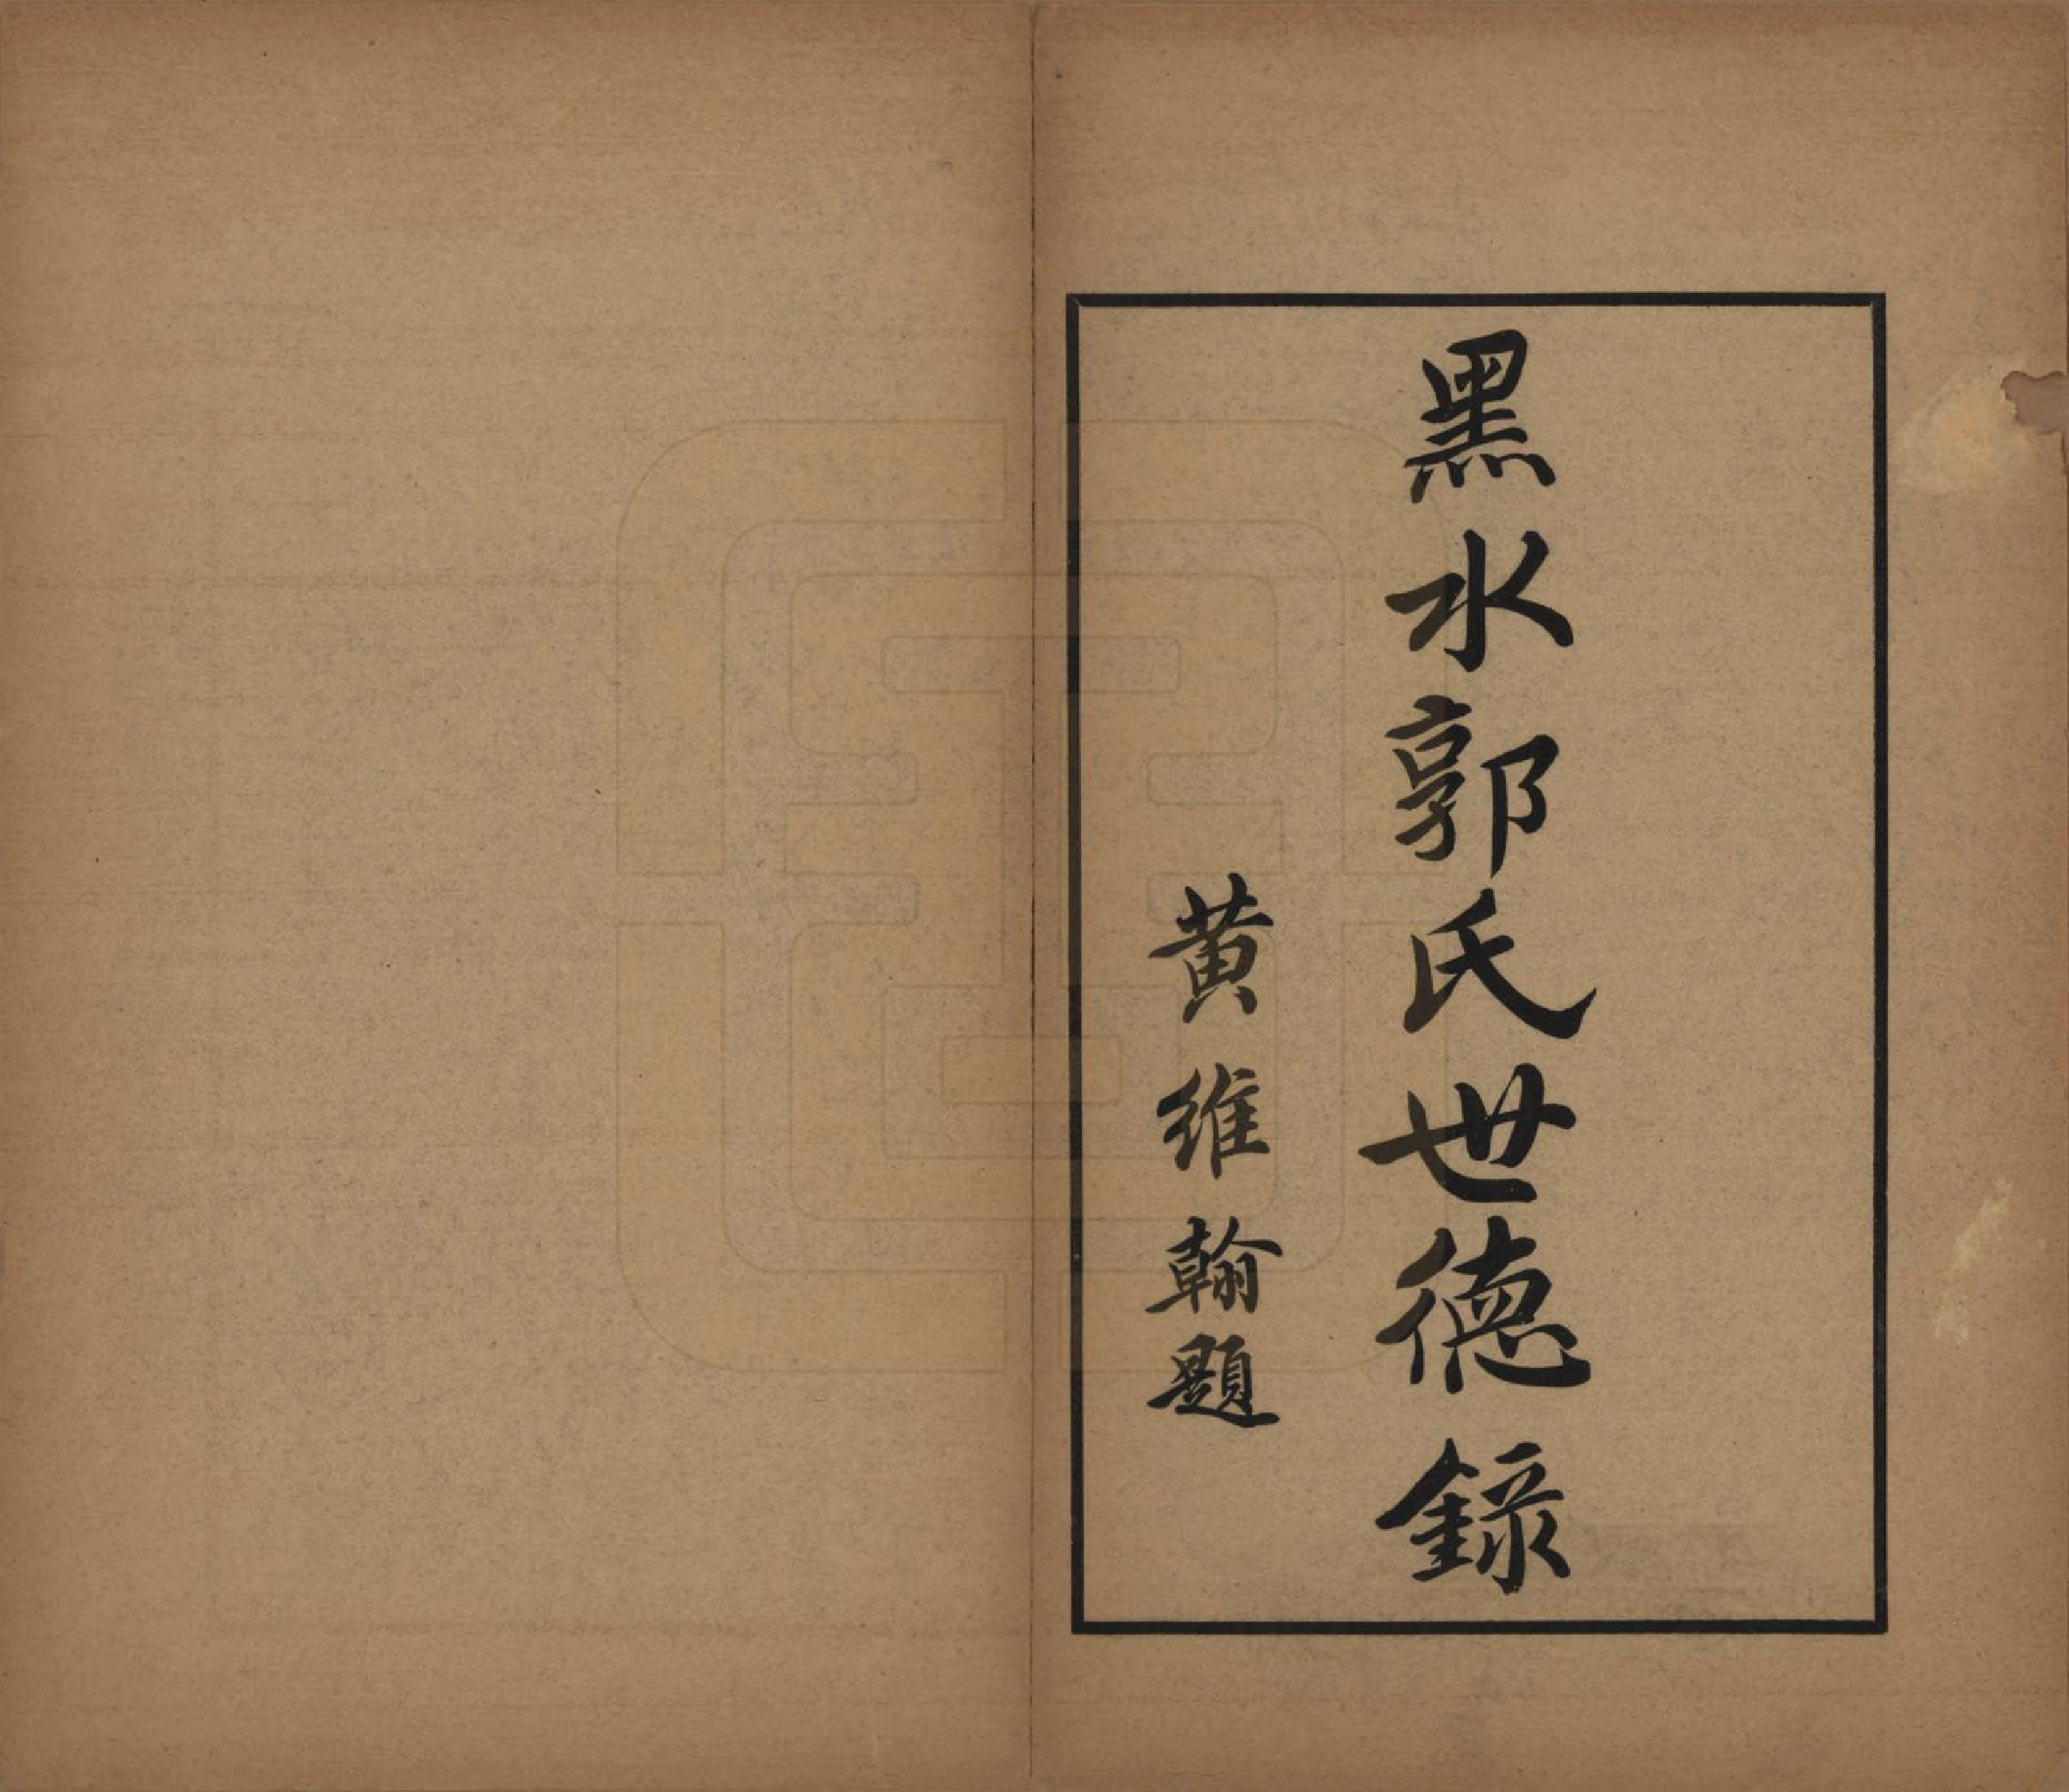 黑水郭氏世德錄
黄維翰題